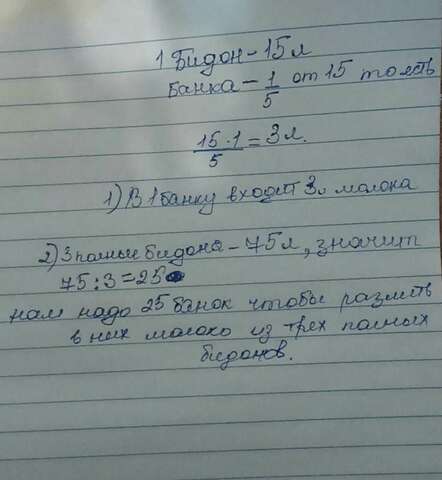 1 Бидон - 15 л
Банка - 1/5 от 15 то есть
15 · 1 / 5 = 3 л.
1) В 1 банку входит 3 л молока
2) 3 полные бидона - 75 л, значит
75 : 3 = 25
нам надо 25 банок чтобы разлить
в них молоко из трех полных
бидонов.